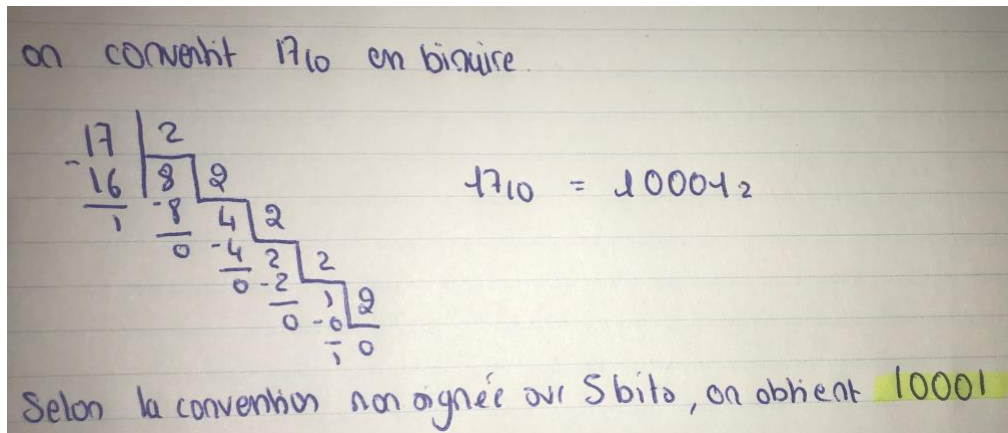 on convertit 17₁₀ en binaire.
17 2
- 16 8 2
1 - 8 4 2
0 - 4 2 2
0 - 2 1 2
0 - 0 0
1
17₁₀ = 10001₂
Selon la convention non signée sur 5 bits, on obtient 10001